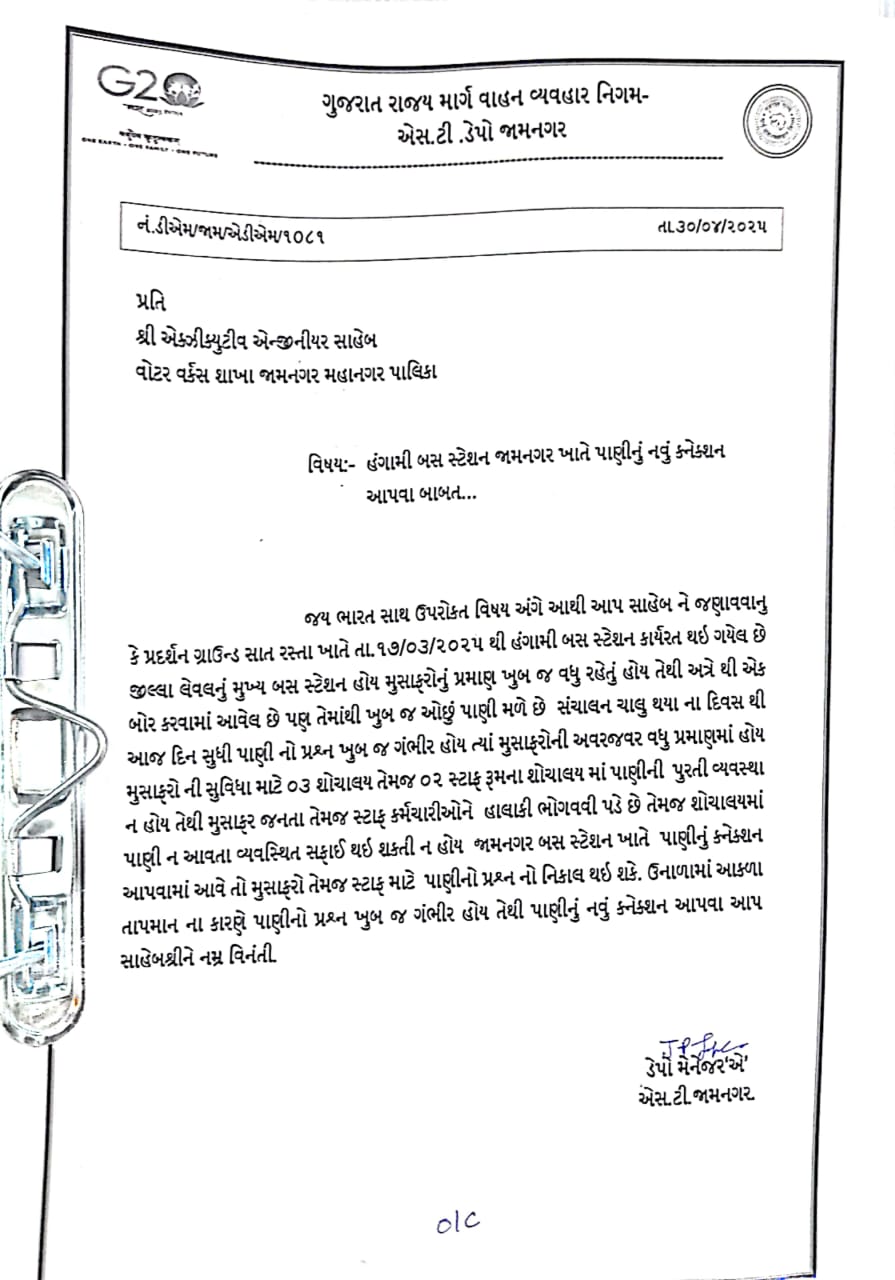 G20
ONE EARTH • ONE FAMILY • ONE FUTURE
ગુજરાત રાજય માર્ગ વાહન વ્યવહાર નિગમ-
એસ.ટી .ડેપો જામનગર
નં.ડીએમ/જામ/એડીએમ/૧૦૮૧ તા.૩૦/૦૪/૨૦૨૫
પ્રતિ
શ્રી એક્ઝીક્યુટીવ એન્જીનીયર સાહેબ
વોટર વર્કસ શાખા જામનગર મહાનગર પાલિકા
વિષય:- હંગામી બસ સ્ટેશન જામનગર ખાતે પાણીનું નવું કનેક્શન
આપવા બાબત...
જય ભારત સાથ ઉપરોકત વિષય અંગે આથી આપ સાહેબ ને જણાવવાનુ
કે પ્રદર્શન ગ્રાઉન્ડ સાત રસ્તા ખાતે તા.૧૭/૦૩/૨૦૨૫ થી હંગામી બસ સ્ટેશન કાર્યરત થઇ ગયેલ છે
જીલ્લા લેવલનું મુખ્ય બસ સ્ટેશન હોય મુસાફરોનું પ્રમાણ ખુબ જ વધુ રહેતું હોય તેથી અત્રે થી એક
બોર કરવામાં આવેલ છે પણ તેમાંથી ખુબ જ ઓછું પાણી મળે છે સંચાલન ચાલુ થયા ના દિવસ થી
આજ દિન સુધી પાણી નો પ્રશ્ન ખુબ જ ગંભીર હોય ત્યાં મુસાફરોની અવરજવર વધુ પ્રમાણમાં હોય
મુસાફરો ની સુવિધા માટે ૦૩ શોચાલય તેમજ ૦૨ સ્ટાફ રૂમના શોચાલય માં પાણીની પુરતી વ્યવસ્થા
ન હોય તેથી મુસાફર જનતા તેમજ સ્ટાફ કર્મચારીઓને હાલાકી ભોગવવી પડે છે તેમજ શોચાલયમાં
પાણી ન આવતા વ્યવસ્થિત સફાઈ થઇ શકતી ન હોય જામનગર બસ સ્ટેશન ખાતે પાણીનું કનેક્શન
આપવામાં આવે તો મુસાફરો તેમજ સ્ટાફ માટે પાણીનો પ્રશ્ન નો નિકાલ થઇ શકે. ઉનાળામાં આકળા
તાપમાન ના કારણે પાણીનો પ્રશ્ન ખુબ જ ગંભીર હોય તેથી પાણીનું નવું કનેક્શન આપવા આપ
સાહેબશ્રીને નમ્ર વિનંતી.
ડેપો મેનેજર'એ'
એસ.ટી.જામનગર.
O/C